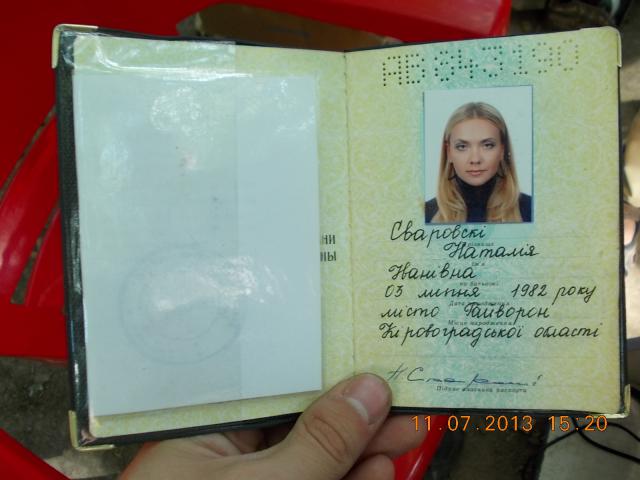 АВ 843190
Сваровскі
Прізвище
Наталія
ім'я
Іванівна
по батькові
03 липня 1982 року
Дата народження
місто Гайворон
Місце народження
Кіровоградської області
Підпис власника паспорта
НИ
НЫ
11.07.2013 15:20